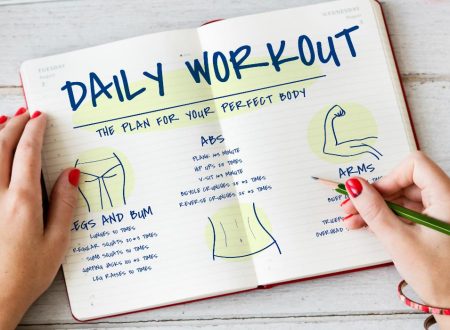 TUESDAY
August
DAILY WORKOUT
THE PLAN FOR YOUR PERFECT BODY
ABS
PLANK 1x3 MINUTE
HIP UPS 20 TIMES
V-SIT 1x3 MINUTE
BICYCLE CRUNCHES 20x2 TIMES
REVERSE CRUNCHES 20x2 TIMES
LEGS AND BUM
LUNGES 10 TIMES
REGULAR SQUATS 20x3 TIMES
SUMB SQUATS 10 TIMES
JUMPING JACKS 100x2 TIMES
LEG RAISES 50 TIMES
ARMS
TRICEPS
OVERHEAD